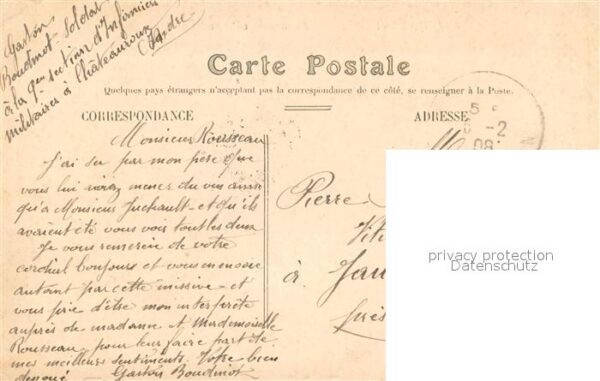 Gaston
Boudinot Soldat
à la 9e section d'Infirmiers
militaires à Châteauroux
Indre
Carte Postale
Quelques pays étrangers n'acceptant pas la correspondance de ce côté, se renseigner à la Poste.
CORRESPONDANCE
ADRESSE
5
-2
08
Monsieur Rousseau
J'ai su par mon père que
vous lui aviez mener du vin ainsi
qu'à Monsieur Juchault et qu'ils
avaient été vous voir tout les deux
Je vous remercie de votre
cordial bonjours et vous en envoie
autant par cette missive et
vous prie d'être mon interprète
auprès de madame et Mademoiselle
Rousseau pour leur faire part de
mes meilleurs sentiments. Votre bien
dévoué Gaston Boudinot
Pierre
Viti
à Jau
près
privacy protection
Datenschutz